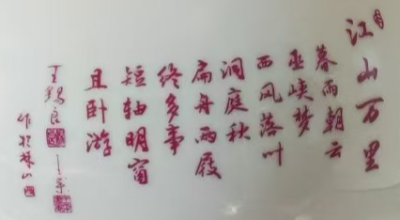 江山万里
暮雨朝云
巫峡梦
西风落叶
洞庭秋
扁舟两屐
终多事
短轴明窗
且卧游
王锡良
作於珠山